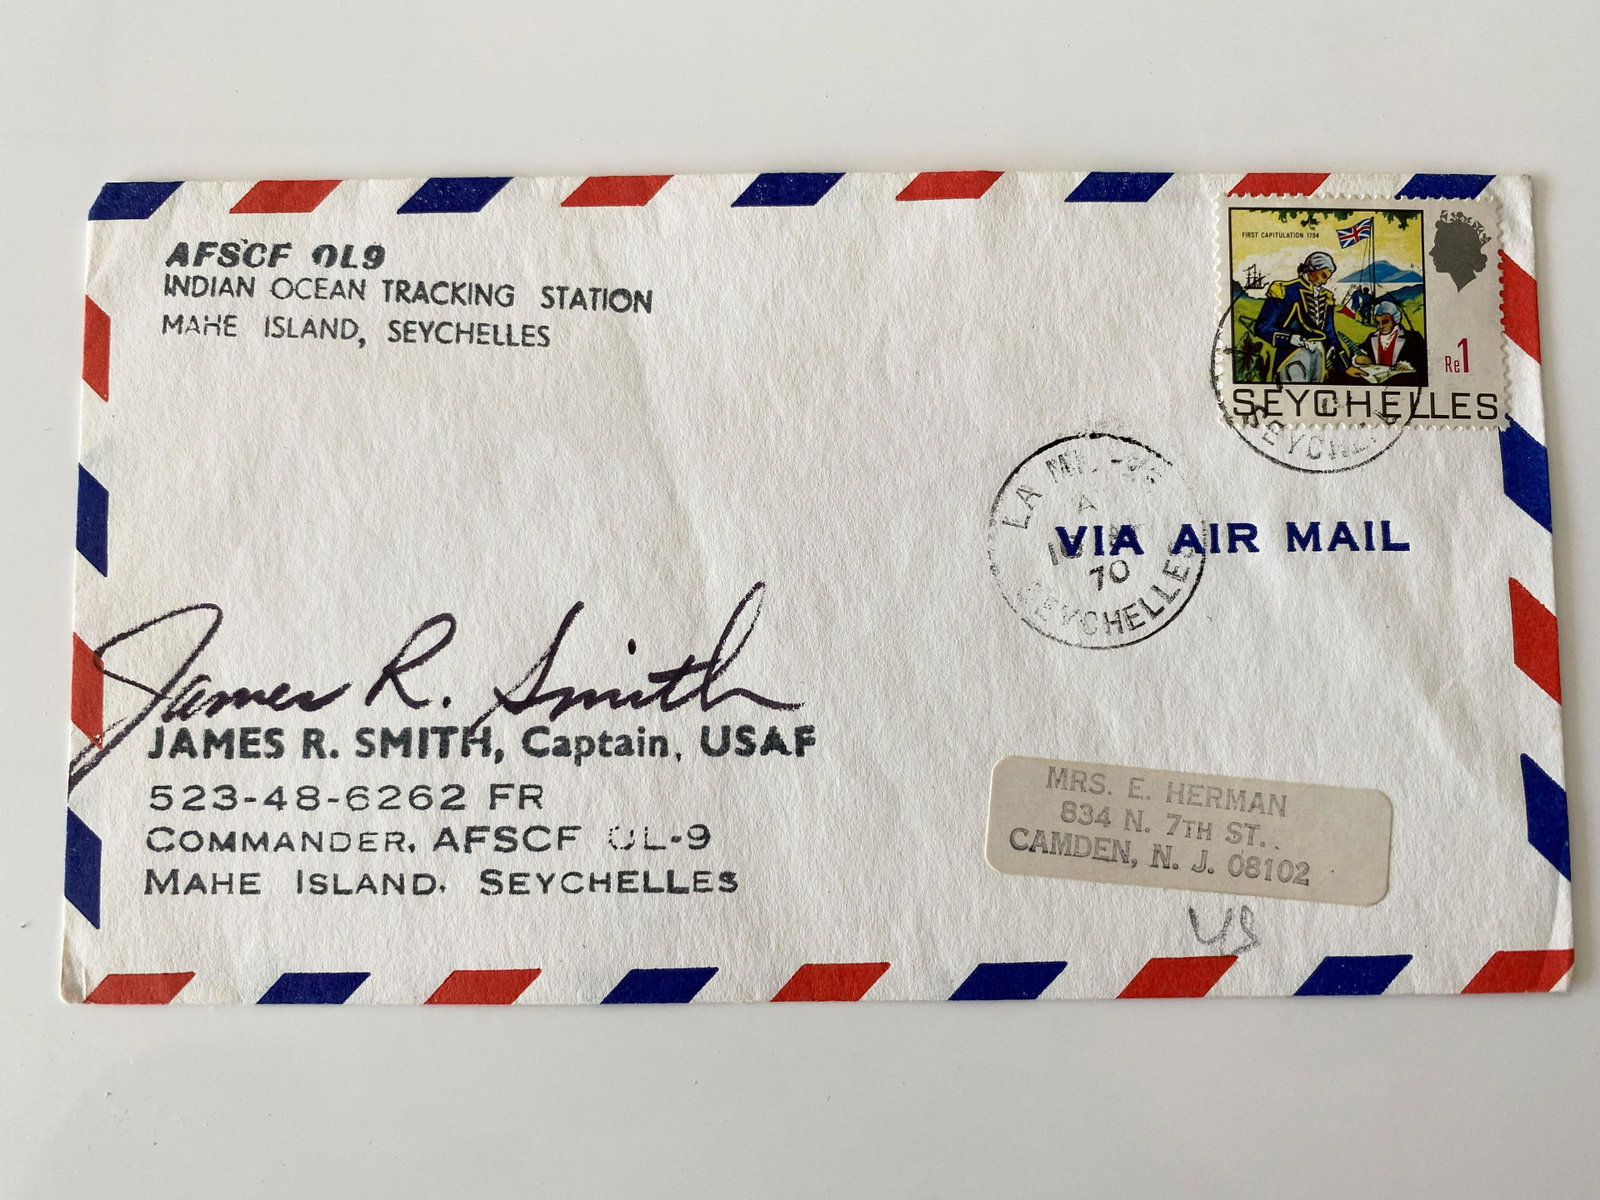 AFSCF OL9
INDIAN OCEAN TRACKING STATION
MAHE ISLAND, SEYCHELLES
FIRST CAPITULATION 1794
Re1
SEYCHELLES
SEYCHEL
LA
A
70
SEYCHELLES
VIA AIR MAIL
James R. Smith
JAMES R. SMITH, Captain, USAF
523-48-6262 FR
COMMANDER, AFSCF OL-9
MAHE ISLAND, SEYCHELLES
MRS. E. HERMAN
834 N. 7TH ST.
CAMDEN, N. J. 08102
US